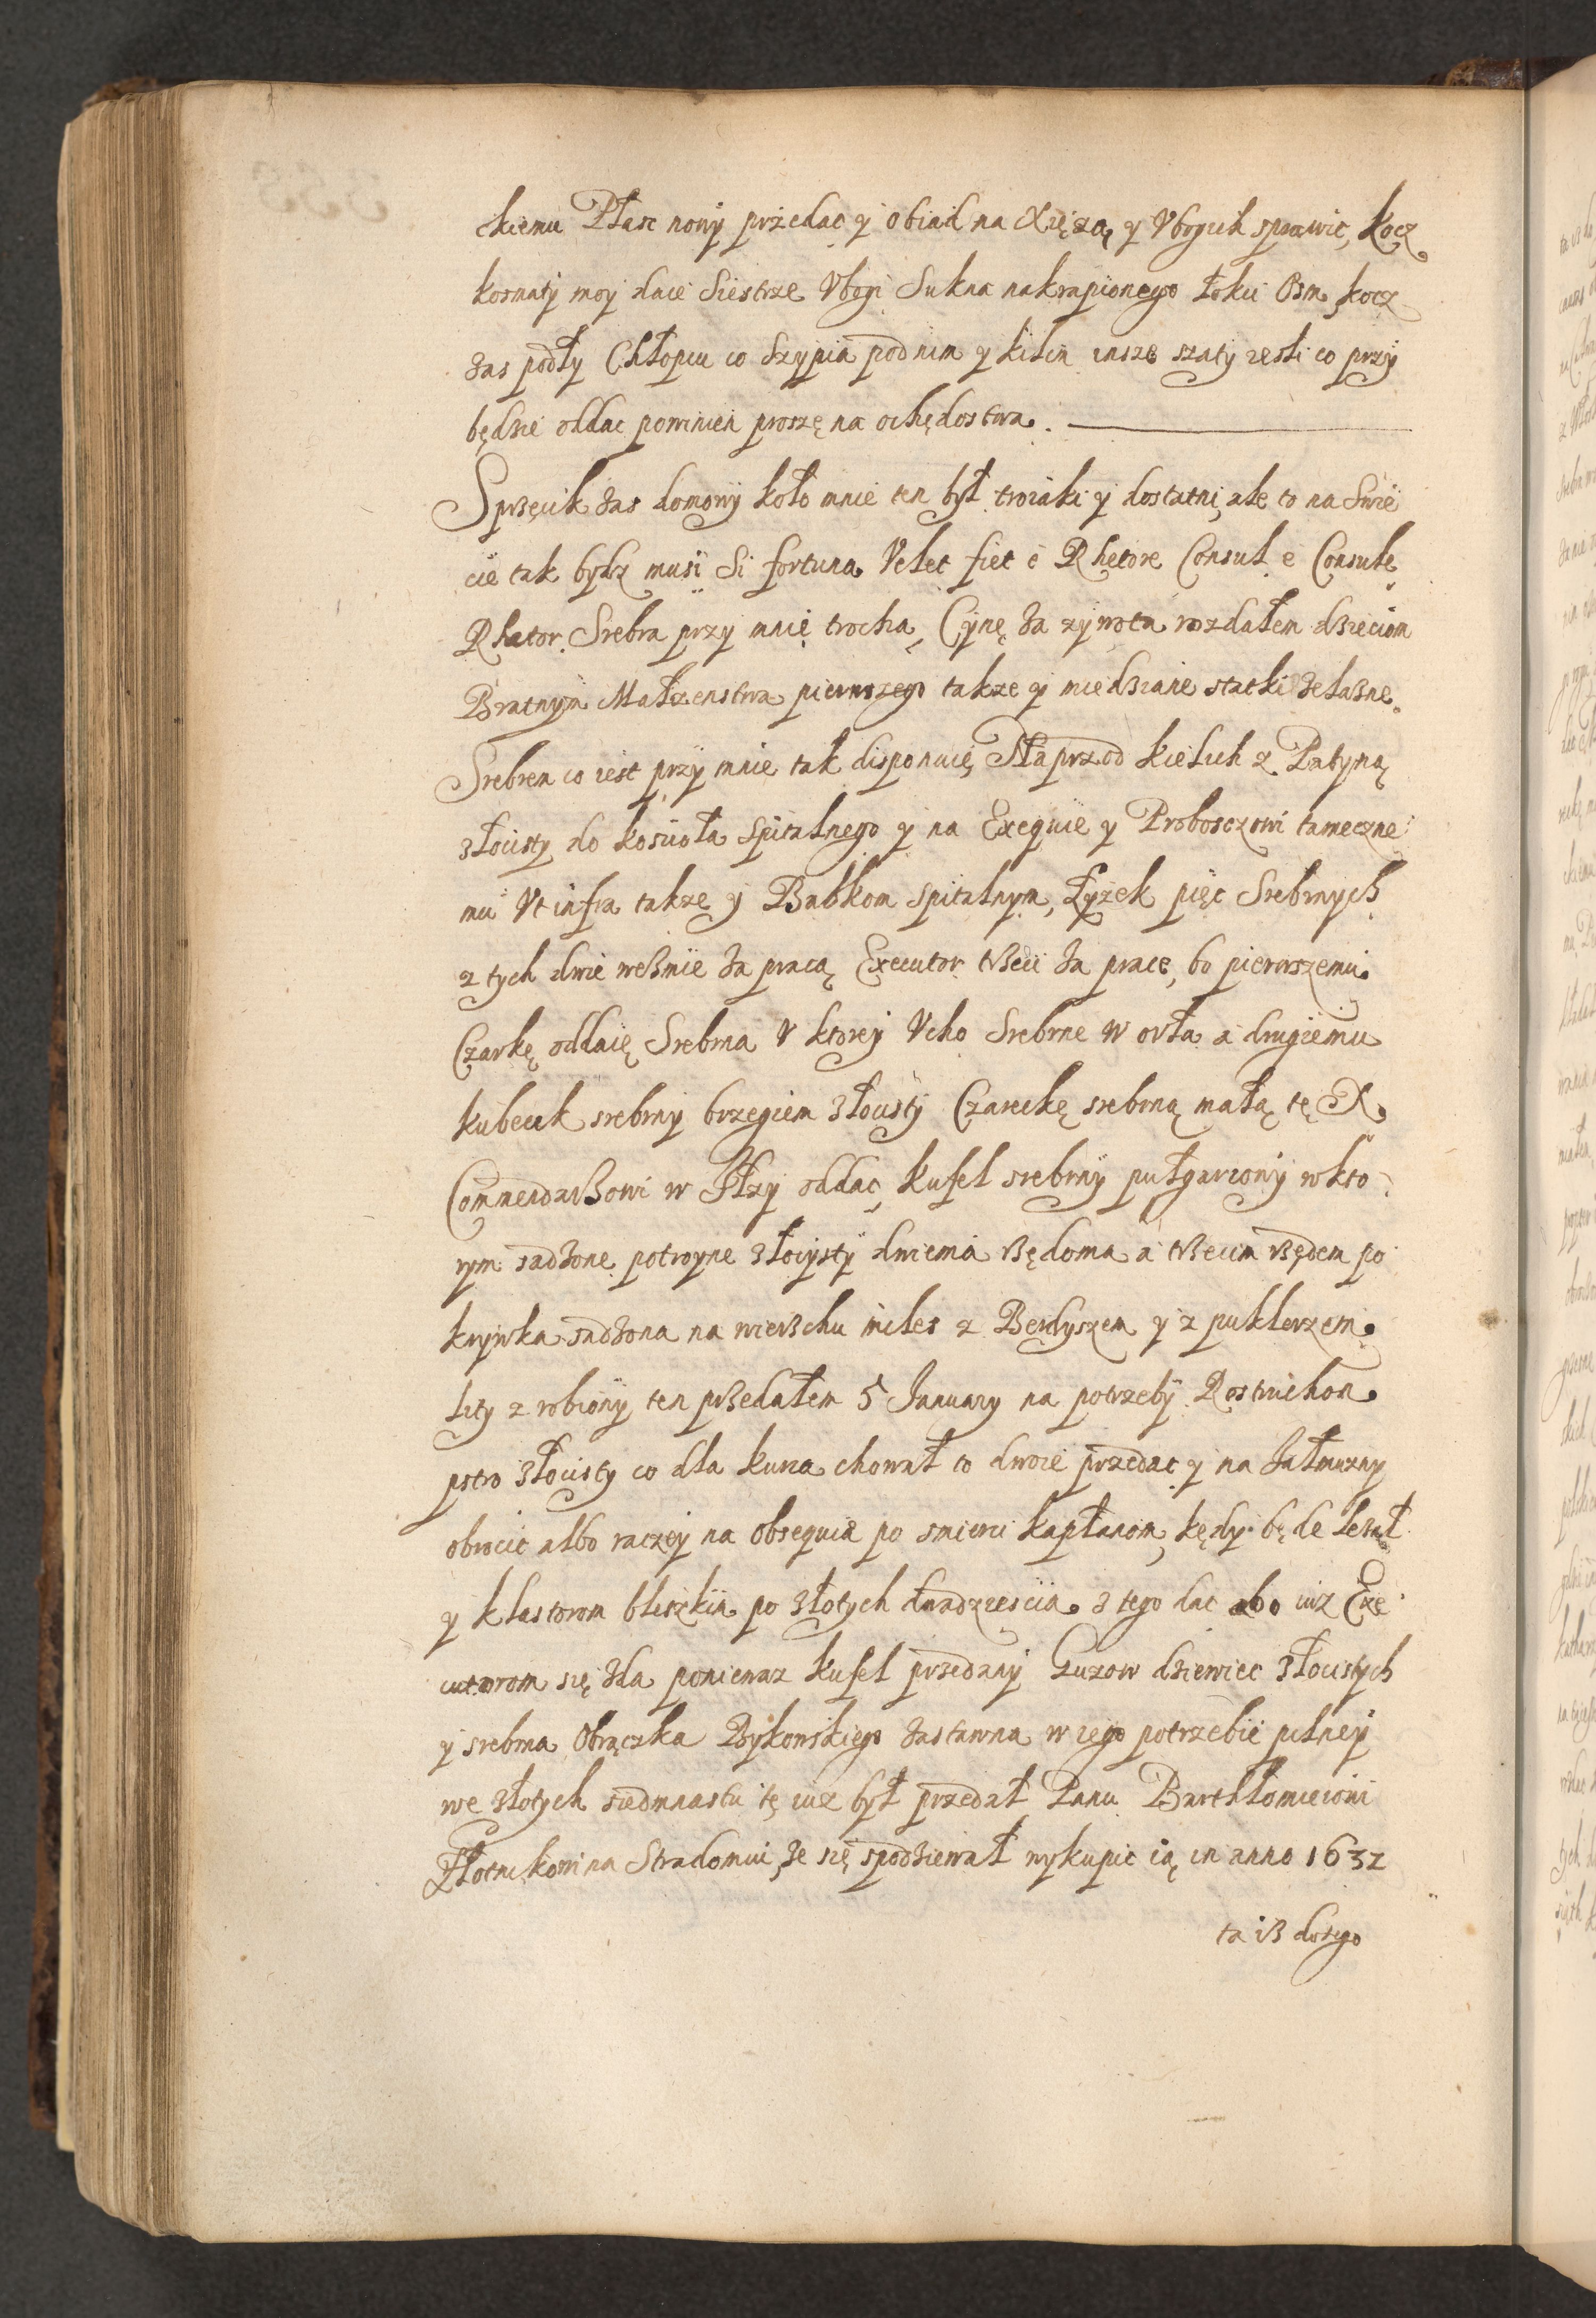 ckiemu Płasc nowy przedac y obiad na Xięzą y Vbogich sprawic, kocz
kosmaty moy dacie Siestrze Vbogi Sukna nakrapionego łokci Osm, kocz
zas podły Chłopcu co Szypia pod nim y kilim insze szaty iesli co przy
będzie oddac powinien proszę na ochędostwa.
Sprzęcik zas domowy koło mnie ten był troiaki y dostatni, ale to na Swie
cie tak bydz musi Si fortuna Velet fiet é Rhetore Consul é Consule
Rhetor. Srebra przy mnie trocha, Cynę za zywota rozdałem dzieciom
Bratnym Małzenstwa pierwszego takze y miedziane statki zelazne.
Srebrem co iest przy mnie tak disponuię, Naprzod kielich z Patyną
złocisty do kosciola Spitalnego y na Exequie y Proboszczowi tameczne
mu Vt infra takze y Babkom spitalnym, Łyżek pięc Srebrnych
z tych dwie weźmie za pracą Executor trzeci za prace, bo pierwszemu
Czarkę oddaię Srebrna V ktorey Vcho Srebrne w orła a drugiemu
kubecek srebrny brzegiem złocisty Czareckę srebrną małą tę X.
Commendarzowi w Iłzy oddac, kufel srebrny pułgarcowy w kto
rym sadzone potroyne złocysty dwiema rzędoma a trzecim rzędem po
krywka sadzona na wierzchu miles z Berdyszem y z puklerzem.
lity z robiony ten przedałem 5 January na potrzeby. Rostruchon
pstro złocisty co dla kura chował to dwoie przedac y na Jałmuzny
obrocic albo raczey na obsequia po smierci kapłanom, kędy będe lezał
y klastorom bliszkim po złotych dwadziescia. z tego dac abo iuz Exe
cutorom się zda poniewaz kufel przedany Guzow dziewiec złocistych
y srebrna Obrączka Bykowskiego zastawna w iego potrzebie pilney
we złotych siedmnastu tę iuz był przedał Panu Barthłomieiowi
Złotnikowi na Stradomiu, ze się spodziewał wykupic ią in anno 1632
ta iz dotego